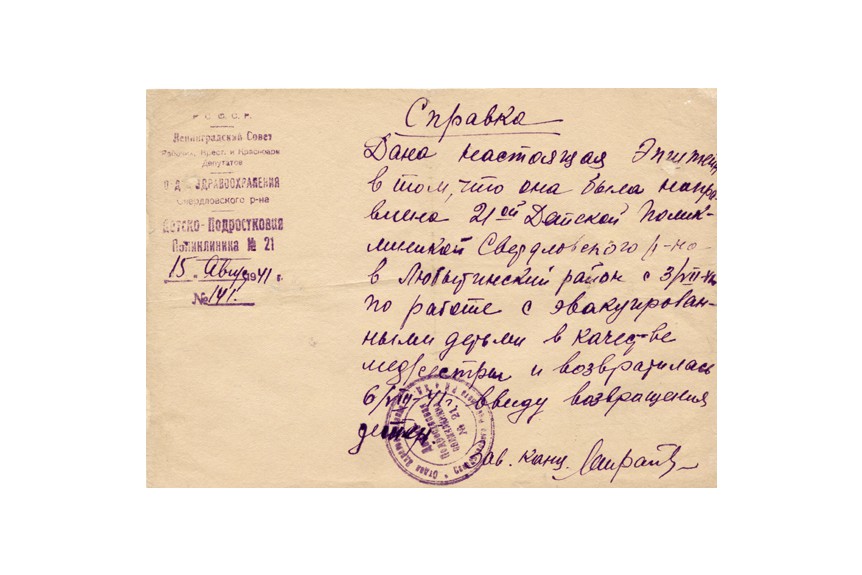 Р. С. Ф. С. Р.
Ленинградский Совет
Рабочих, Крест. и Красноарм.
Депутатов
ОТДЕЛ ЗДРАВООХРАНЕНИЯ
Свердловского р-на
Детско-Подростковая
Поликлиника № 21
15 . Август 1941 г.
№ 141.
Справка
Дана настоящая
в том, что она была напра-
влена 21ой Детской Полик-
линикой Свердловского р-на
в Любытинский район с 3/VII-41
по работе с эвакуирован-
ными детьми в качестве
медсестры и возвратилась
6/VIII-41г. ввиду возвращения
детей.
Зав. канц.